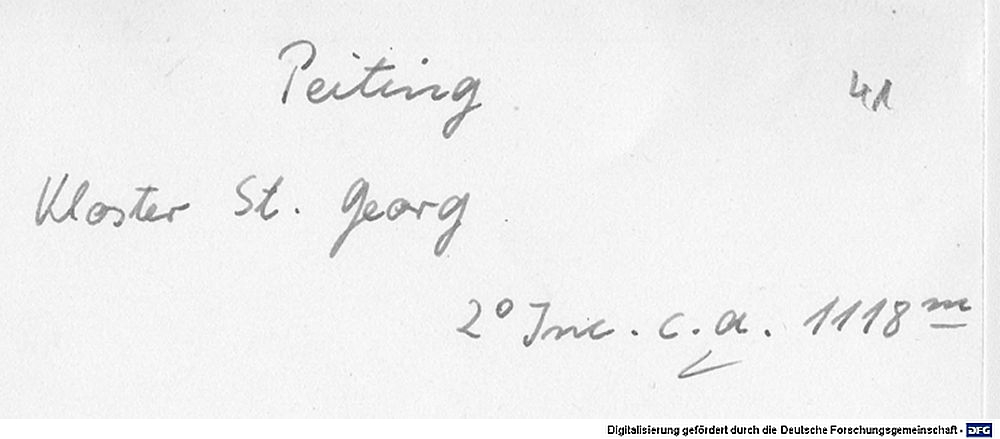 Peiting
41
Kloster St. Georg
2° Inc. c. a. 1118 m
Digitalisierung gefördert durch die Deutsche Forschungsgemeinschaft - DFG